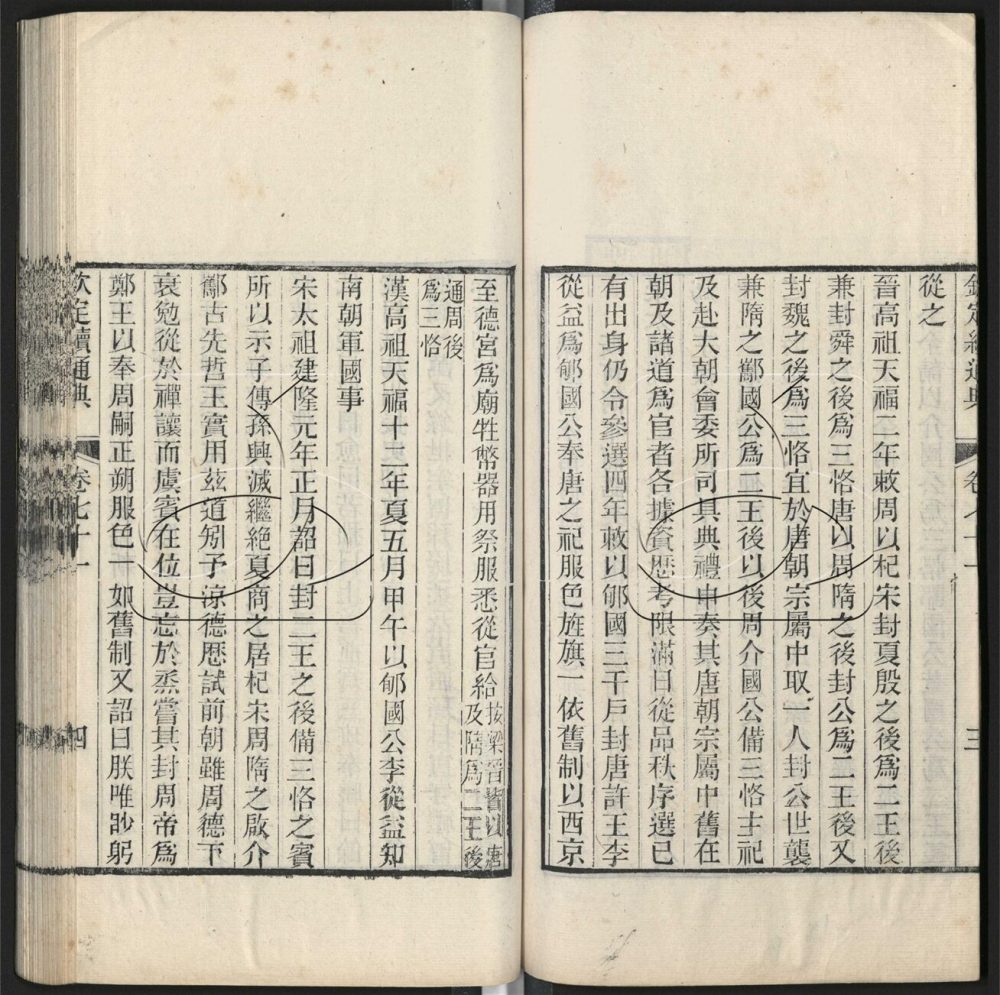 欽定續通典 卷七十一 三
從之
晉高祖天福二年敕周以杞宋封夏殷之後爲二王後
兼封舜之後爲三恪唐以周隋之後封公爲二王後又
封魏之後爲三恪宜於唐朝宗屬中取一人封公世襲
兼隋之酅國公爲二王後以後周介國公備三恪主祀
及赴大朝會委所司具典禮申奏其唐朝宗屬中舊在
朝及諸道爲官者各據資歷考限滿日從品秩序選已
有出身仍令參選四年敕以郇國三千戶封唐許王李
從益爲郇國公奉唐之祀服色旌旗一依舊制以西京
至德宮爲廟牲幣器用祭服悉從官給按梁晉皆以唐及隋爲二王後
通周後爲三恪
漢高祖天福十二年夏五月甲午以郇國公李從益知
南朝軍國事
宋太祖建隆元年正月詔曰封二王之後備三恪之賓
所以示子傳孫興滅繼絕夏商之居杞宋周隋之啟介
酅古先哲王實用茲道矧予涼德歷試前朝雖周德下
衰勉從於禪讓而虞賓在位豈忘於烝嘗其封周帝爲
鄭王以奉周嗣正朔服色一如舊制又詔曰朕唯眇躬
欽定續通典 卷七十一 四